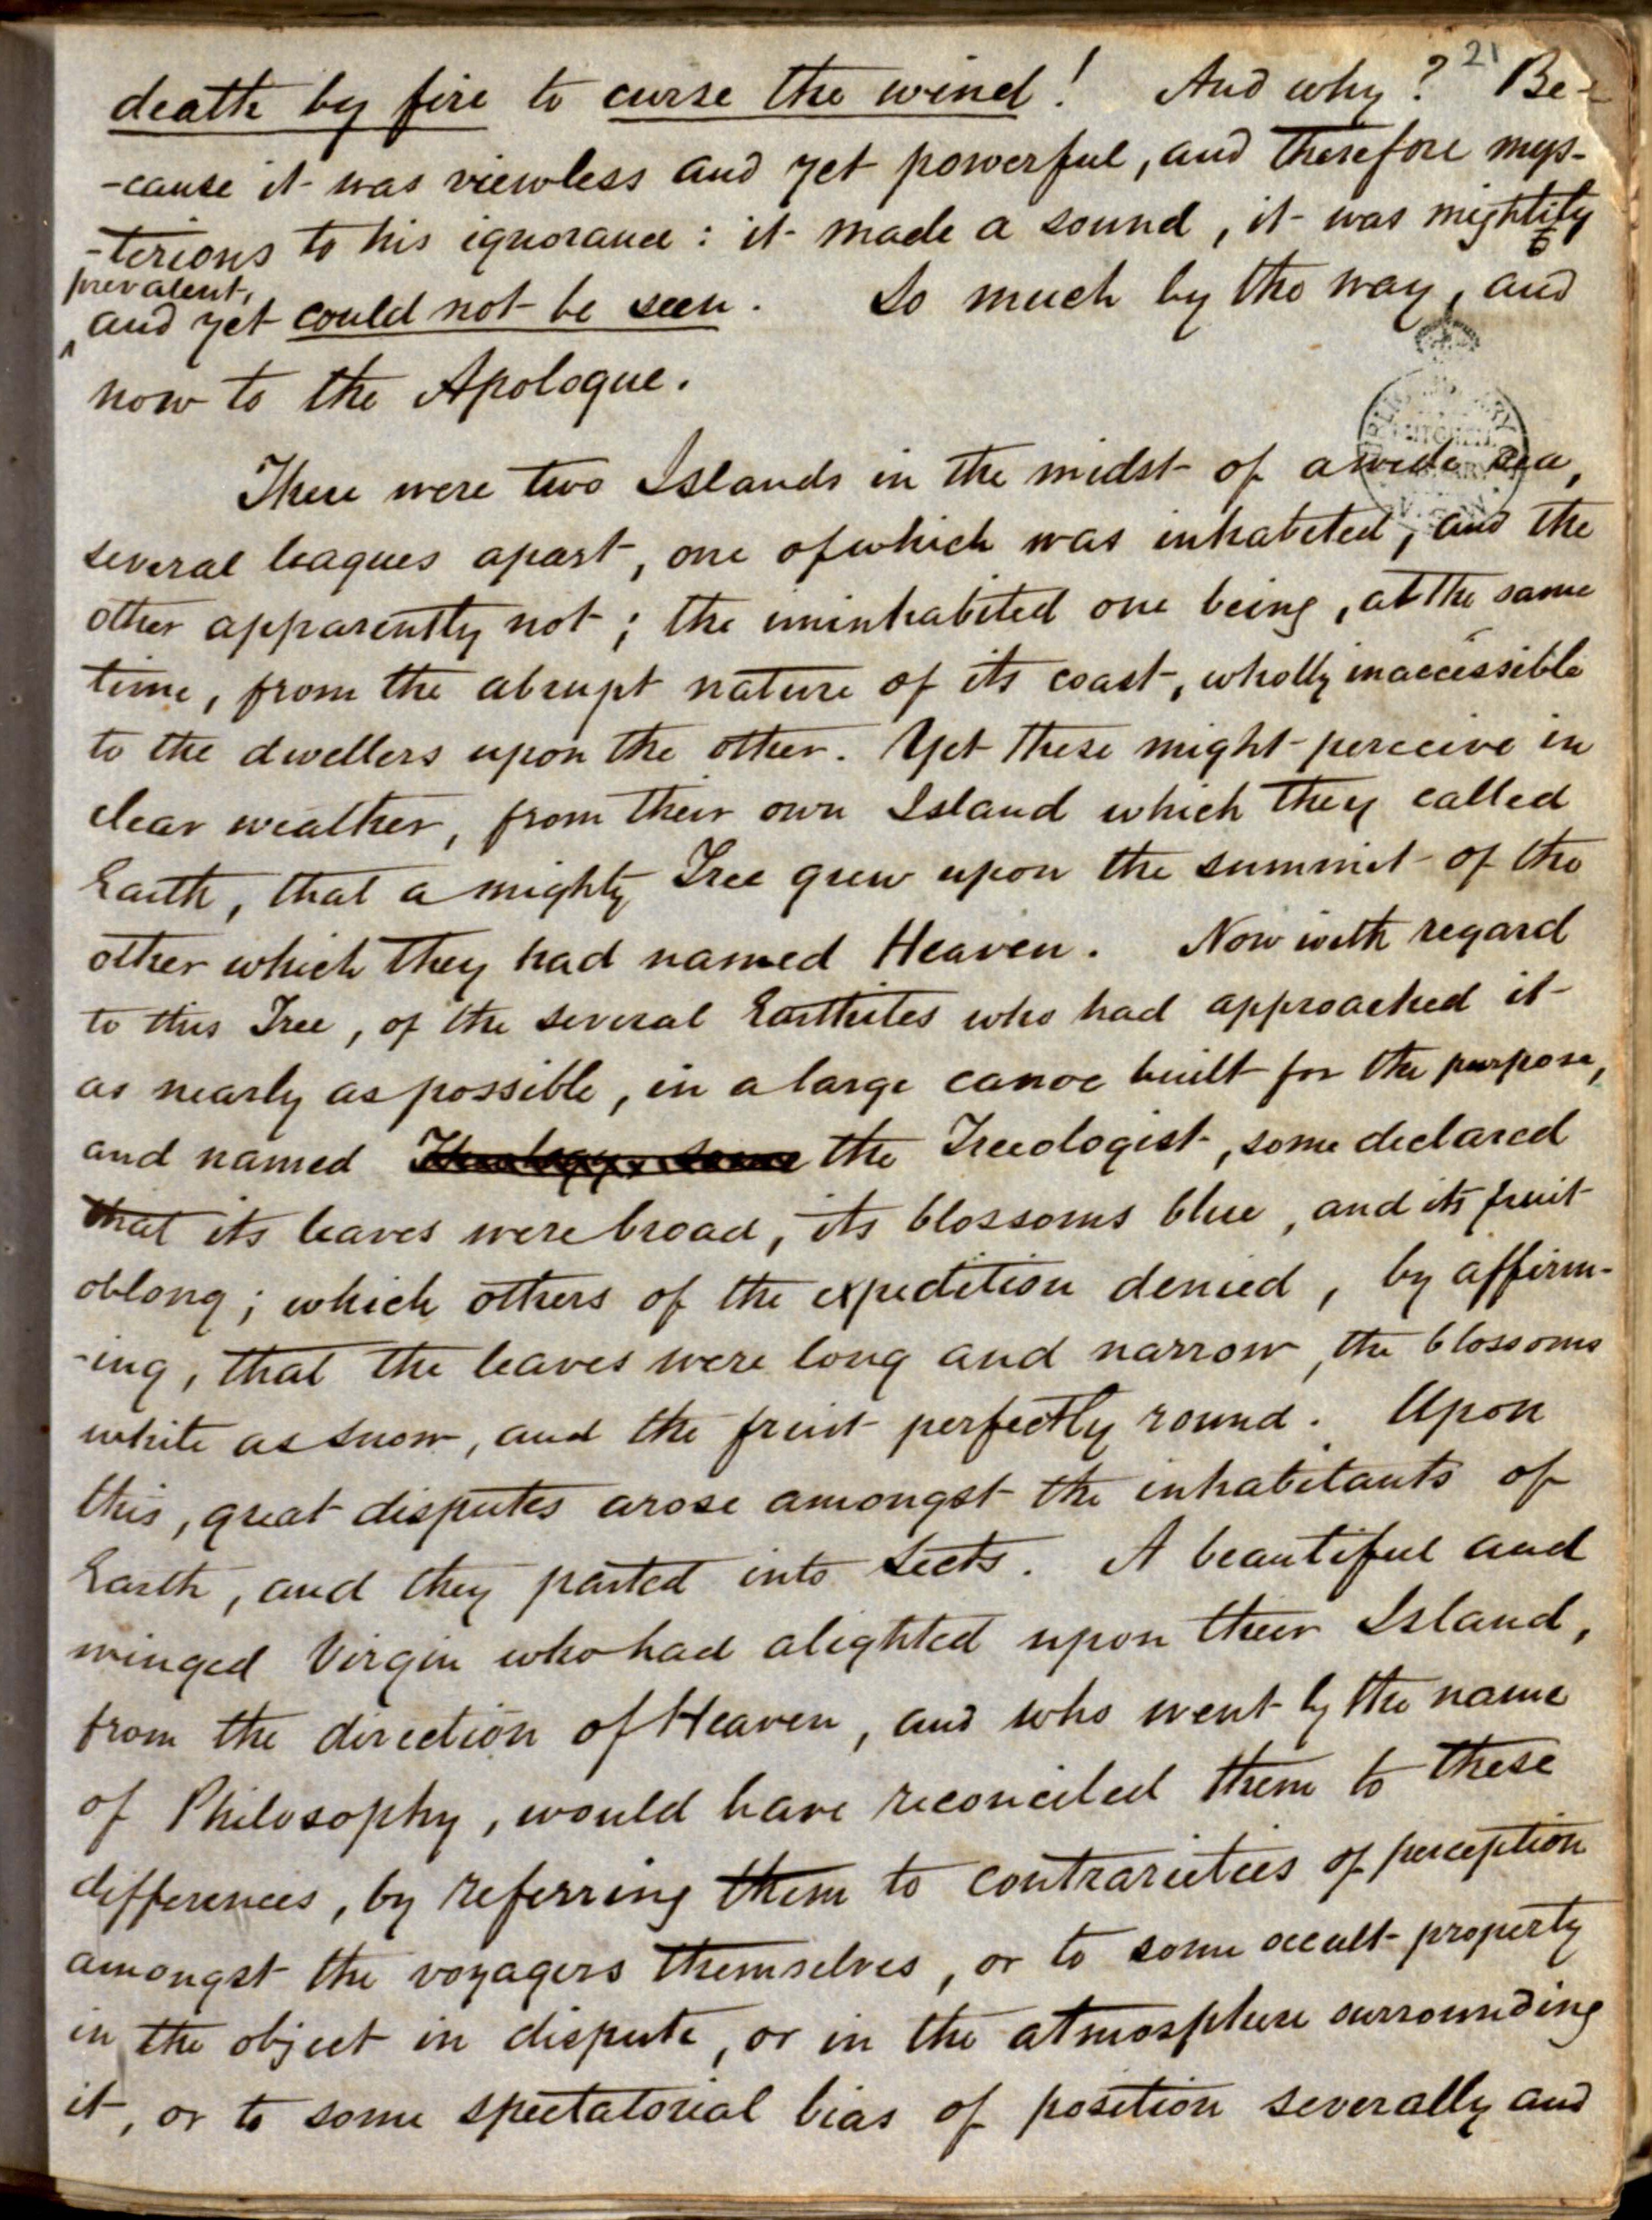 21
death by fire to curse the wind! And why? Be-
-cause it was viewless and yet powerful, and therefore mys-
-terious to his ignorance: it made a sound, it was mightily
prevalent,
and yet could not be seen. So much by the way, and
now to the Apologue.
There were two Islands in the midst of a wide sea,
several leagues apart, one of which was inhabited, and the
other apparently not; the uninhabited one being, at the same
time, from the abrupt nature of its coast, wholly inaccessible
to the dwellers upon the other. Yet these might perceive in
clear weather, from their own Island which they called
Earth, that a mighty Tree grew upon the summit of the
other which they had named Heaven. Now with regard
to this Tree, of the several Earthites who had approached it
as nearly as possible, in a large canoe built for the purpose,
and named the Treeologist, some declared
that its leaves were broad, its blossoms blue, and its fruit
oblong; which others of the expedition denied, by affirm-
-ing, that the leaves were long and narrow, the blossoms
white as snow, and the fruit perfectly round. Upon
this, great disputes arose amongst the inhabitants of
Earth, and they parted into Sects. A beautiful and
winged Virgin who had alighted upon their Island,
from the direction of Heaven, and who went by the name
of Philosophy, would have reconciled them to these
differences, by referring them to contrarieties of perception
amongst the voyagers themselves, or to some occult property
in the object in dispute, or in the atmosphere surrounding
it, or to some spectatorial bias of position severally and